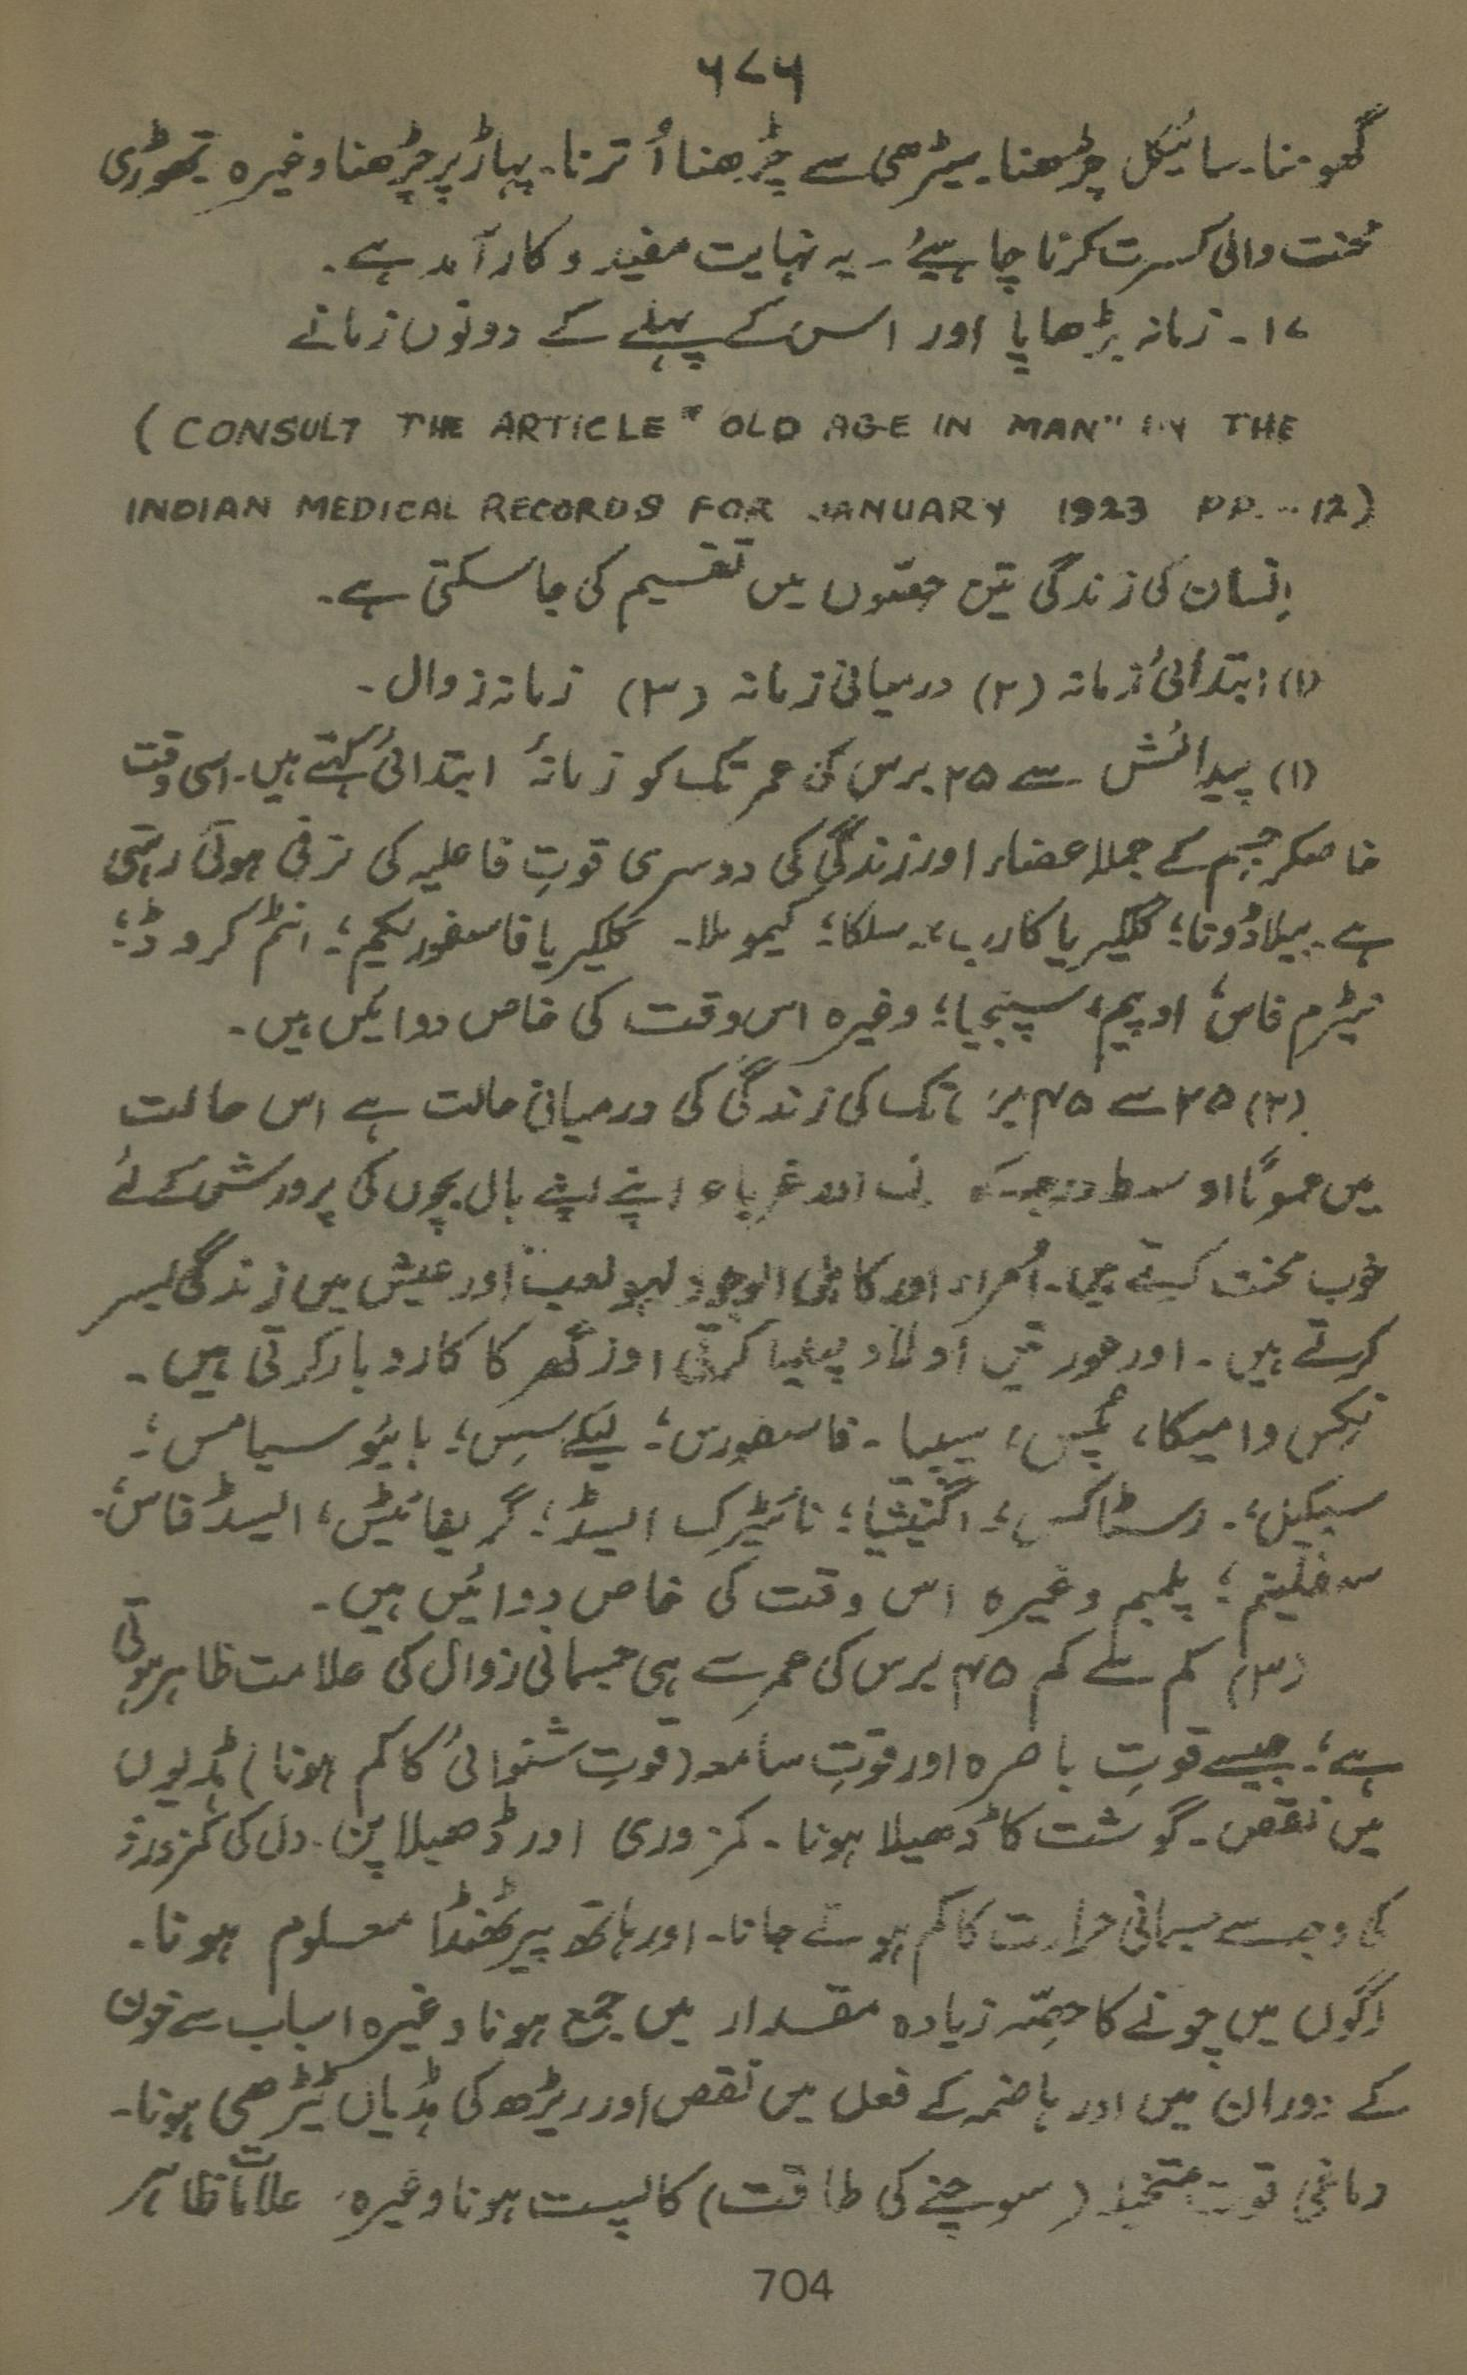 ۶۷۶
گھومنا۔ سائیکل چڑھنا۔ سیڑھی سے چڑھنا اُترنا۔ پہاڑ پر چڑھنا وغیرہ تھوڑی
محنت والی کسرت کرنا چاہیئے ۔ یہ نہایت مفید و کارآمد ہے۔
۱۷۔ زمانہ بڑھاپا اور اس کے پہلے کے دونوں زمانے
(CONSULT THE ARTICLE "OLD AGE IN MAN" IN THE
INDIAN MEDICAL RECORDS FOR JANUARY 1923 PP. -- 12)
اِنسان کی زندگی تین حصّوں میں تقسیم کی جا سکتی ہے۔
(۱) ابتدائی زمانہ (۲) درمیانی زمانہ (۳) زمانہ زوال۔
(۱) پیدائش سے ۲۵ برس کی عمر تک کو زمانۂ ابتدائی کہتے ہیں۔ اسی وقت
خاصکر جسم کے جملا عضاء اور زندگی کی دوسری قوتِ فاعلیہ کی ترقی ہوتی رہتی
ہے۔ بیلاڈونا؛ کلکیریا کارب؛ سلکا؛ کیموملا۔ کلکیریا فاسفوریکیم؛ انٹم کروڈ؛
نیٹرم فاس؛ اوپیم؛ سپنجیا؛ وغیرہ اس وقت کی خاص دوائیں ہیں۔
(۲) ۲۵ سے ۴۵ تک کی زندگی کی درمیانی حالت ہے اس حالت
میں عموماً اوسط درجہ کے اور غرباء اپنے اپنے بال بچوں کی پرورش کے لئے
خوب محنت کرتے ہیں۔ اُمراء اور کاہل الوجود لہو لعب اور عیش میں زندگی بسر
کرتے ہیں۔ اور عورتیں اولاد پیدا کرتی اور گھر کا کاروبار کرتی ہیں۔
نکس وامیکا، سیپیا۔ فاسفورس؛ لیکےسِس؛ ہائیوسیامس؛
سیکیل؛ رسٹاکس؛ اگنیشیا؛ نائیٹرک ایسڈ؛ گریفائیٹس؛ ایسڈ فاس؛
سفلینم؛ پلمبم وغیرہ اس وقت کی خاص دوائیں ہیں۔
(۳) کم سے کم ۴۵ برس کی عمر سے ہی جسمانی زوال کی علامت ظاہر ہوتی
ہے؛ جیسے قوتِ باصرہ اور قوتِ سامعہ (قوتِ شنوائی کا کم ہونا) ہڈیوں
میں نقص۔ گوشت کا ڈھیلا ہونا۔ کمزوری اور ڈھیلا پن۔ دل کی کمزوری
کی وجہ سے جسمانی حرارت کا کم ہوتے جانا۔ اور ہاتھ پیر ٹھنڈا معلوم ہونا۔
رگوں میں چونے کا حصّہ زیادہ مقدار میں جمع ہونا وغیرہ اسباب سے خون
کے دوران میں اور ہاضمہ کے فعل میں نقص اور ریڑھ کی ہڈیاں ٹیڑھی ہونا۔
دماغی قوت متخیلہ (سوچنے کی طاقت) کا پست ہونا وغیرہ علامات ظاہر
704